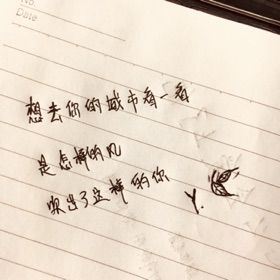 No.
Date
想去你的城市看一看
是怎样的风
吹出了这样的你
Y.